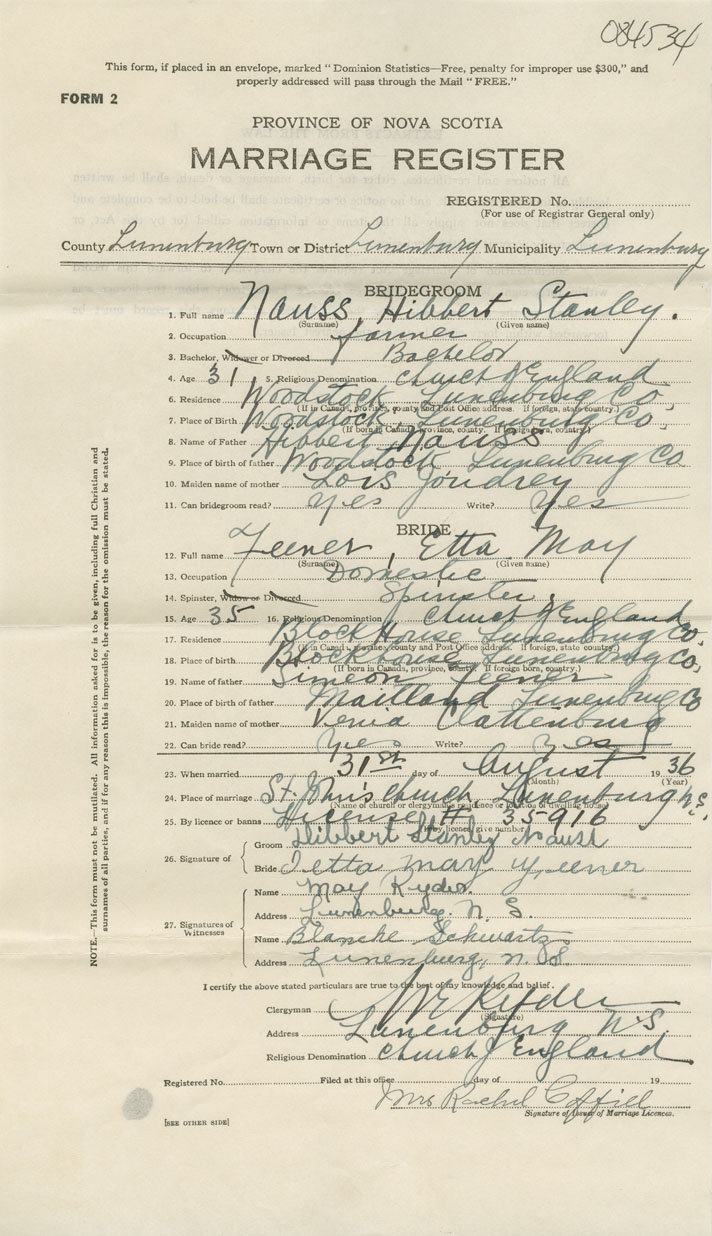 084534
This form, if placed in an envelope, marked "Dominion Statistics—Free, penalty for improper use $300," and
properly addressed will pass through the Mail "FREE."
FORM 2
PROVINCE OF NOVA SCOTIA
MARRIAGE REGISTER
REGISTERED No.
(For use of Registrar General only)
County Lunenburg Town or District Lunenburg Municipality Lunenburg
BRIDEGROOM
1. Full name Nauss, Hibbert Stanley.
(Surname) (Given name)
2. Occupation farmer
3. Bachelor, Widower or Divorced Bachelor
4. Age 31 5. Religious Denomination Church of England
6. Residence Woodstock Lunenburg Co,
(If in Canada, province, county and Post Office address. If foreign, state country.)
7. Place of Birth Woodstock, Lunenburg Co,
(If born in Canada, province, county. If foreign born, country.)
8. Name of Father Hibbert Nauss
9. Place of birth of father Woodstock Lunenburg Co
10. Maiden name of mother Lois Joudrey
11. Can bridegroom read? Yes Write? Yes
BRIDE
12. Full name Feener, Etta May
(Surname) (Given name)
13. Occupation Domestic
14. Spinster, Widow or Divorced Spinster
15. Age 35 16. Religious Denomination Church of England
17. Residence Block House Lunenburg Co,
(If in Canada, province, county and Post Office address. If foreign, state country.)
18. Place of birth Blockhouse Lunenburg Co,
(If born in Canada, province, county. If foreign born, country.)
19. Name of father Simeon Feener
20. Place of birth of father Maitland Lunenburg Co
21. Maiden name of mother Venia Clattenburg
22. Can bride read? Yes Write? Yes
23. When married 31st day of August 1936
(Month) (Year)
24. Place of marriage St. John's Church Lunenburg N.S.
(Name of church or clergyman's residence or location of dwelling house)
25. By licence or banns License # 35916
(If by licence, give number)
26. Signature of
Groom Hibbert Stanley Nauss
Bride Etta May Feener
27. Signatures of Witnesses
Name May Ryder
Address Lunenburg. N. S.
Name Blanche Schwartz
Address Lunenburg, N. S.
I certify the above stated particulars are true to the best of my knowledge and belief.
Clergyman WE Ryder
(Signature)
Address Lunenburg N.S.
Religious Denomination Church of England
Registered No. Filed at this office day of 19
Mrs Rachel
Signature of Issuer of Marriage Licences.
[SEE OTHER SIDE]
NOTE.—This form must not be mutilated. All information asked for is to be given, including full Christian and
surnames of all parties, and if for any reason this is impossible, the reason for the omission must be stated.